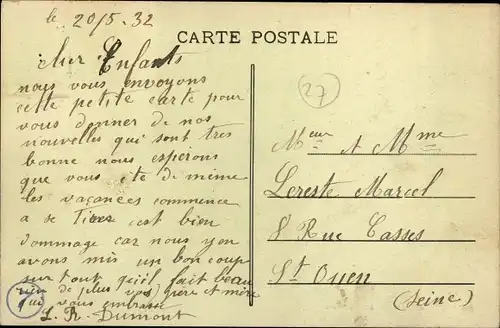 le 20/5-32
CARTE POSTALE
cher Enfants
nous vous envoyons
cette petite carte pour
vous donner de nos
nouvelles qui sont tres
bonne nous esperons
que vous ete de meime
les vacances commence
a se Tirer c'est bien
dommage car nous y en
avons mis un bon coup
sur tout qu'il fait beau
rien de plus vos père et mère
qui vous embrasse
L. R. Dumont
27
Meur et Mme
Lereste Marcel
8 Rue Casses
St Ouen
(Seine)
7